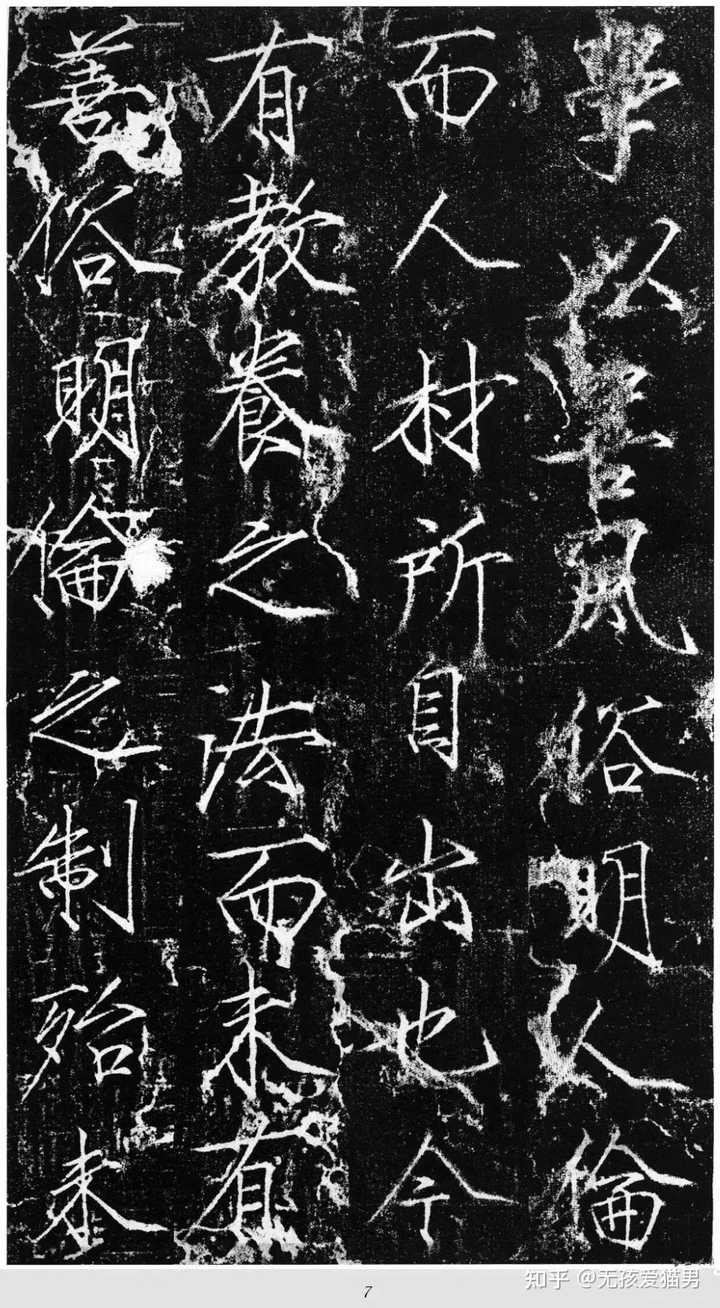 學以善風俗明人倫
而人材所自出也今
有教養之法而未有
善俗明倫之制殆未
7
知乎 @无孩爱猫男